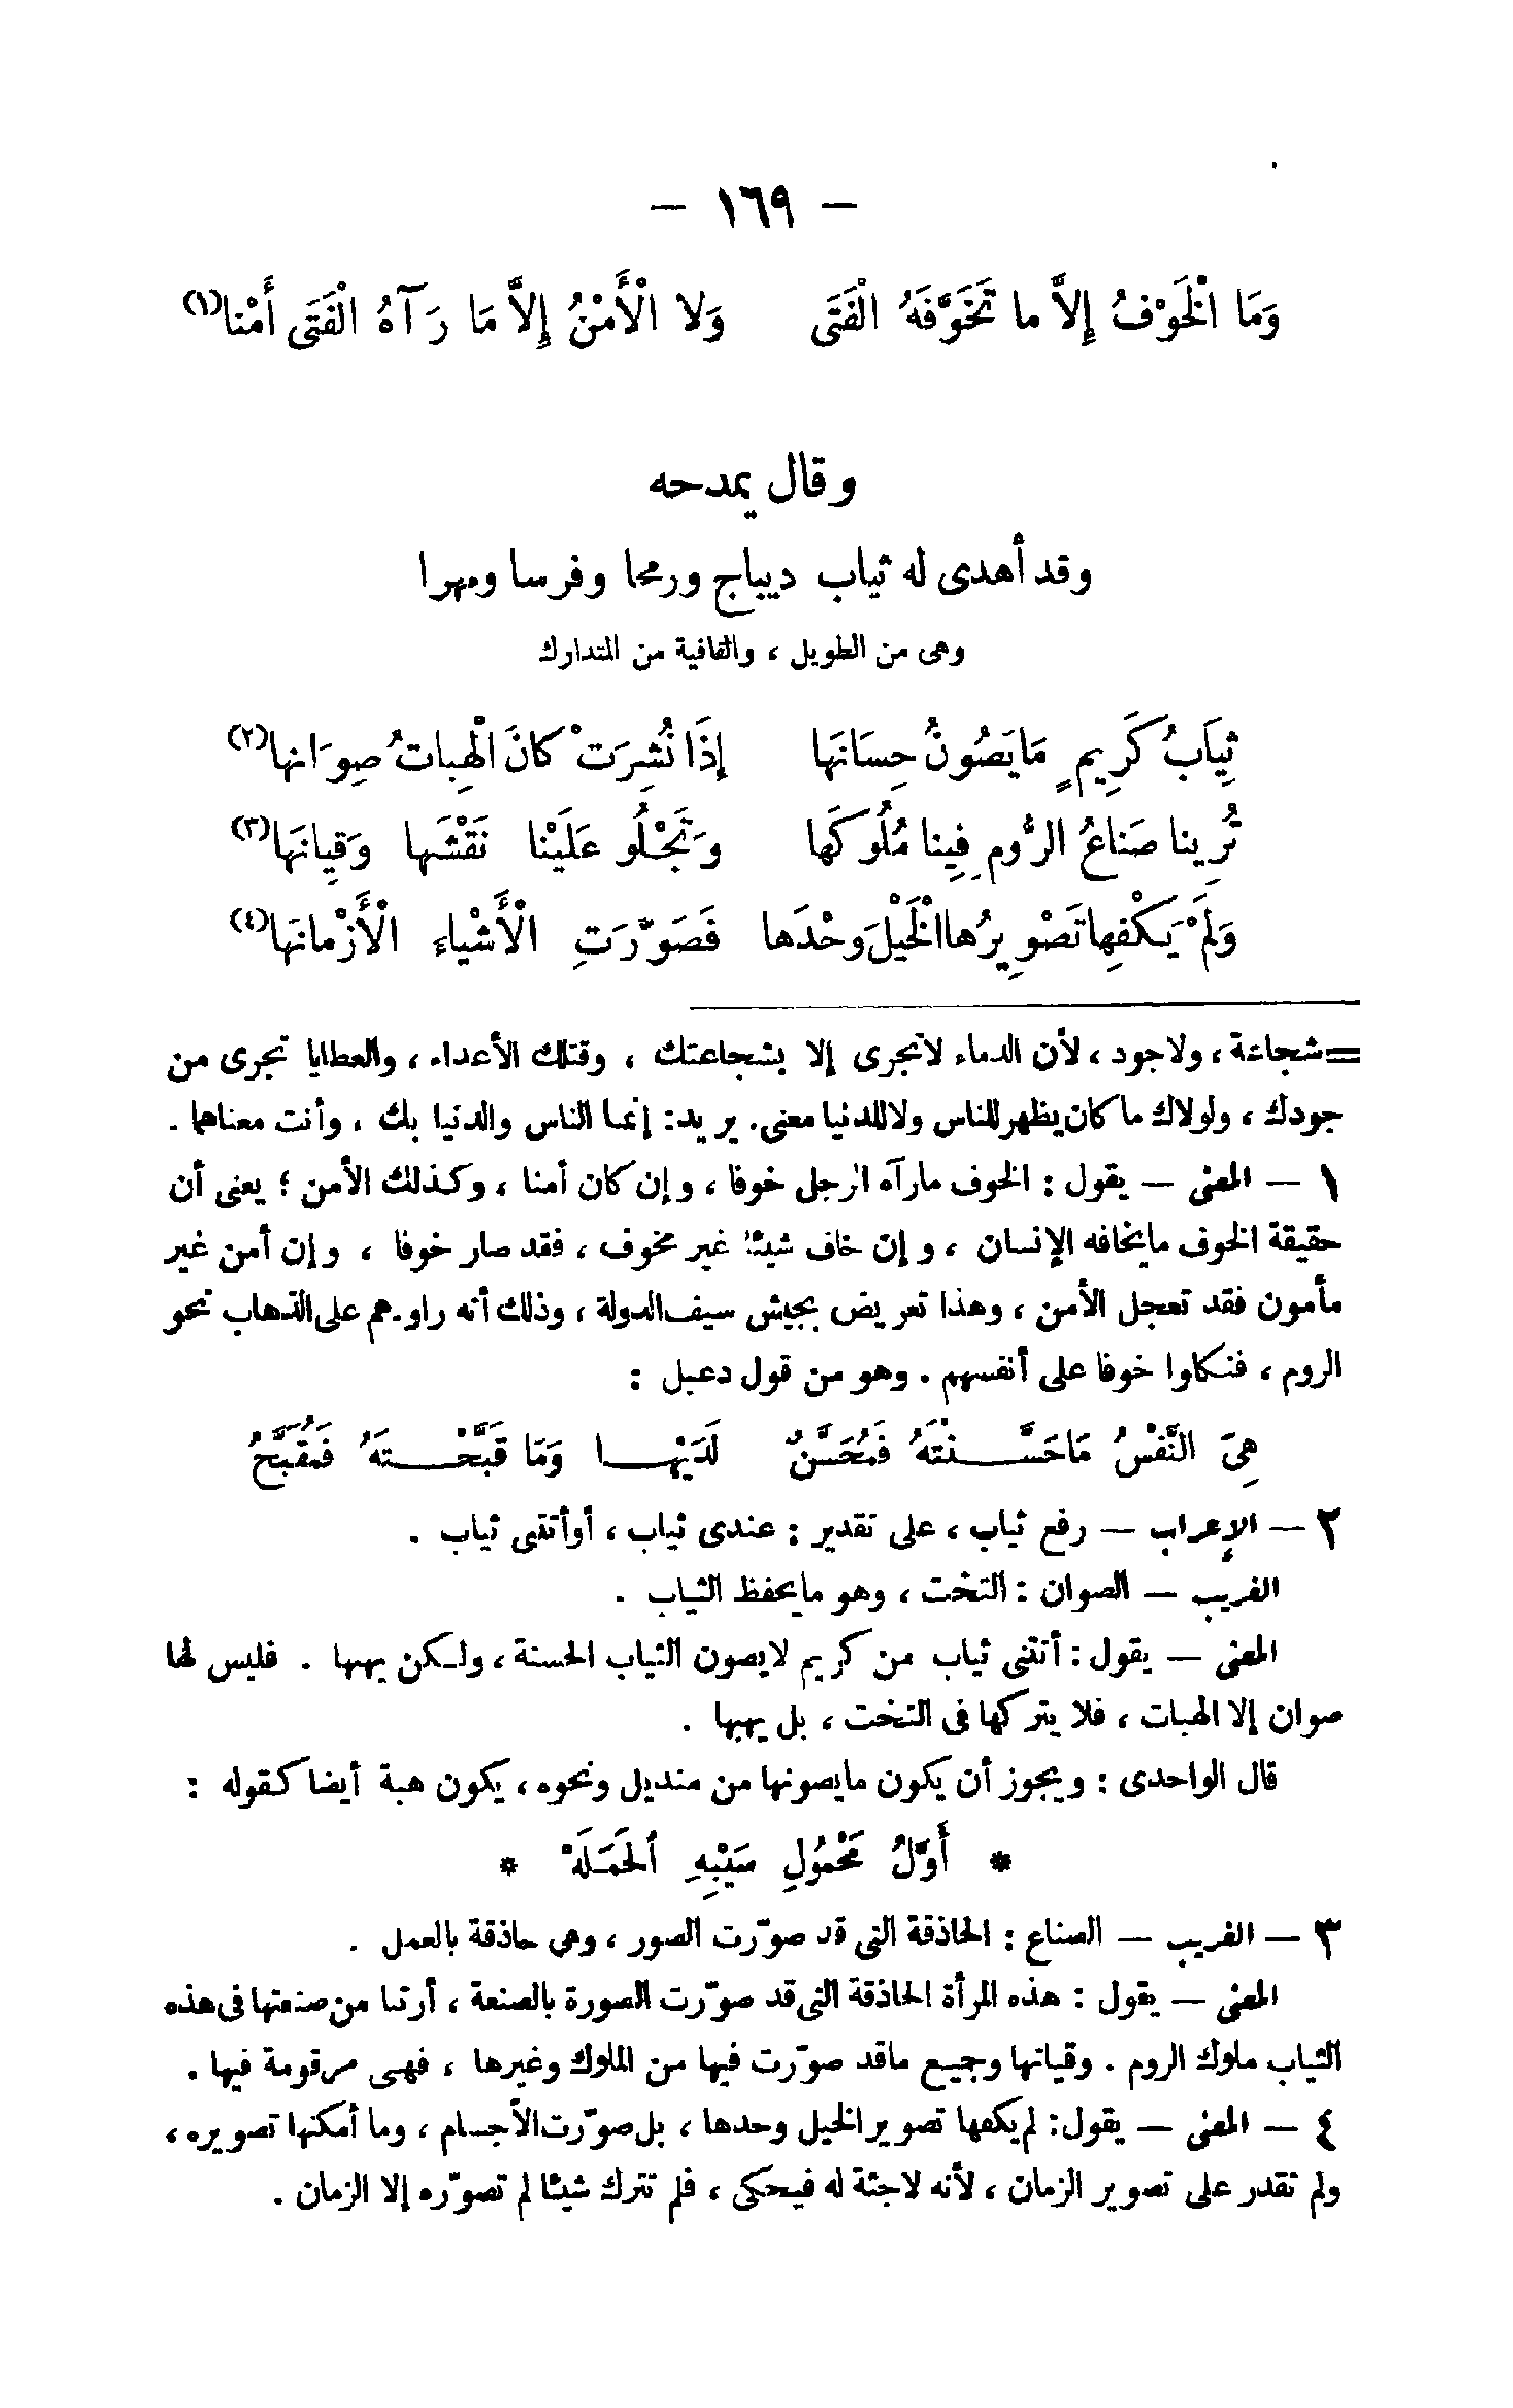 — ١٦٩ —
وَمَا الْخَوْفُ إِلاَّ ما تَخَوَّفَهُ الْفَتَى وَلا الْأَمْنُ إِلاَّ مَا رَآهُ الْفَتَى أَمْنا(١)
وقال يمدحه
وقد أهدى له ثياب ديباج ورمحا وفرسا ومهرا
وهى من الطويل ، والقافية من المتدارك
ثِيَابُ كَرِيمٍ مَايَصُونُ حِسَانَهَا إِذَا نُشِرَتْ كانَ الْهِباتُ صِوَانها(٢)
تُرِينا صَناعُ الرُّومِ فِينا مُلُوكَها وَتَجْلُو عَلَيْنا نَقْشَها وَقِيانَهَا(٣)
وَلَمْ يَكْفِها تَصْوِيرُها الْخَيْلَ وَحْدَها فَصَوَّرَتِ الْأَشْياء الْأَزْمانَهَا(٤)
=شجاعة ، ولاجود ، لأن الدماء لاتجرى إلا بشجاعتك ، وقتلك الأعداء ، والعطايا تجرى من
جودك ، ولولاك ما كان يظهر للناس ولاللدنيا معنى . يريد : إنما الناس والدنيا بك ، وأنت معناهما .
١ — المعنى — يقول : الخوف مارآه الرجل خوفا ، وإن كان أمنا ، وكذلك الأمن ؛ يعنى أن
حقيقة الخوف مايخافه الإنسان ، وإن خاف شيئا غير مخوف ، فقد صار خوفا ، وإن أمن غير
مأمون فقد تعجل الأمن ، وهذا تعريض بجيش سيف الدولة ، وذلك أنه راودهم على الذهاب نحو
الروم ، فنكلوا خوفا على أنفسهم . وهو من قول دعبل :
هِىَ النَّفْسُ مَاحَسَّنَتْهُ فَمُحَسَّنٌ لَدَيْهَا وَمَا قَبَّحَتهُ فَمُقَبَّحُ
٢ — الإعراب — رفع ثياب ، على تقدير : عندى ثياب ، أوأتتنى ثياب .
الغريب — الصوان : التخت ، وهو مايحفظ الثياب .
المعنى — يقول : أتتنى ثياب من كريم لايصون الثياب الحسنة ، ولكن يهبها . فليس لها
صوان إلا الهبات ، فلا يتركها فى التخت ، بل يهبها .
قال الواحدى : ويجوز أن يكون مايصونها من منديل ونحوه ، يكون هبة أيضا كقوله :
* أَوَّلُ مَحْمُولِ سَيْبِهِ ٱلحَمَلَهْ *
٣ — الغريب — الصناع : الحاذقة التى قد صوّرت الصور ، وهى حاذقة بالعمل .
المعنى — يقول : هذه المرأة الحاذقة التى قد صوّرت الصورة بالصنعة ، أرتنا من صنعتها فى هذه
الثياب ملوك الروم . وقيانها وجميع ماقد صوّرت فيها من الملوك وغيرها ، فهى مرقومة فيها .
٤ — المعنى — يقول : لم يكفها تصوير الخيل وحدها ، بل صوّرت الأجسام ، وما أمكنها تصويره ،
ولم تقدر على تصوير الزمان ، لأنه لاجثة له فيحكى ، فلم تترك شيئا لم تصوّره إلا الزمان .